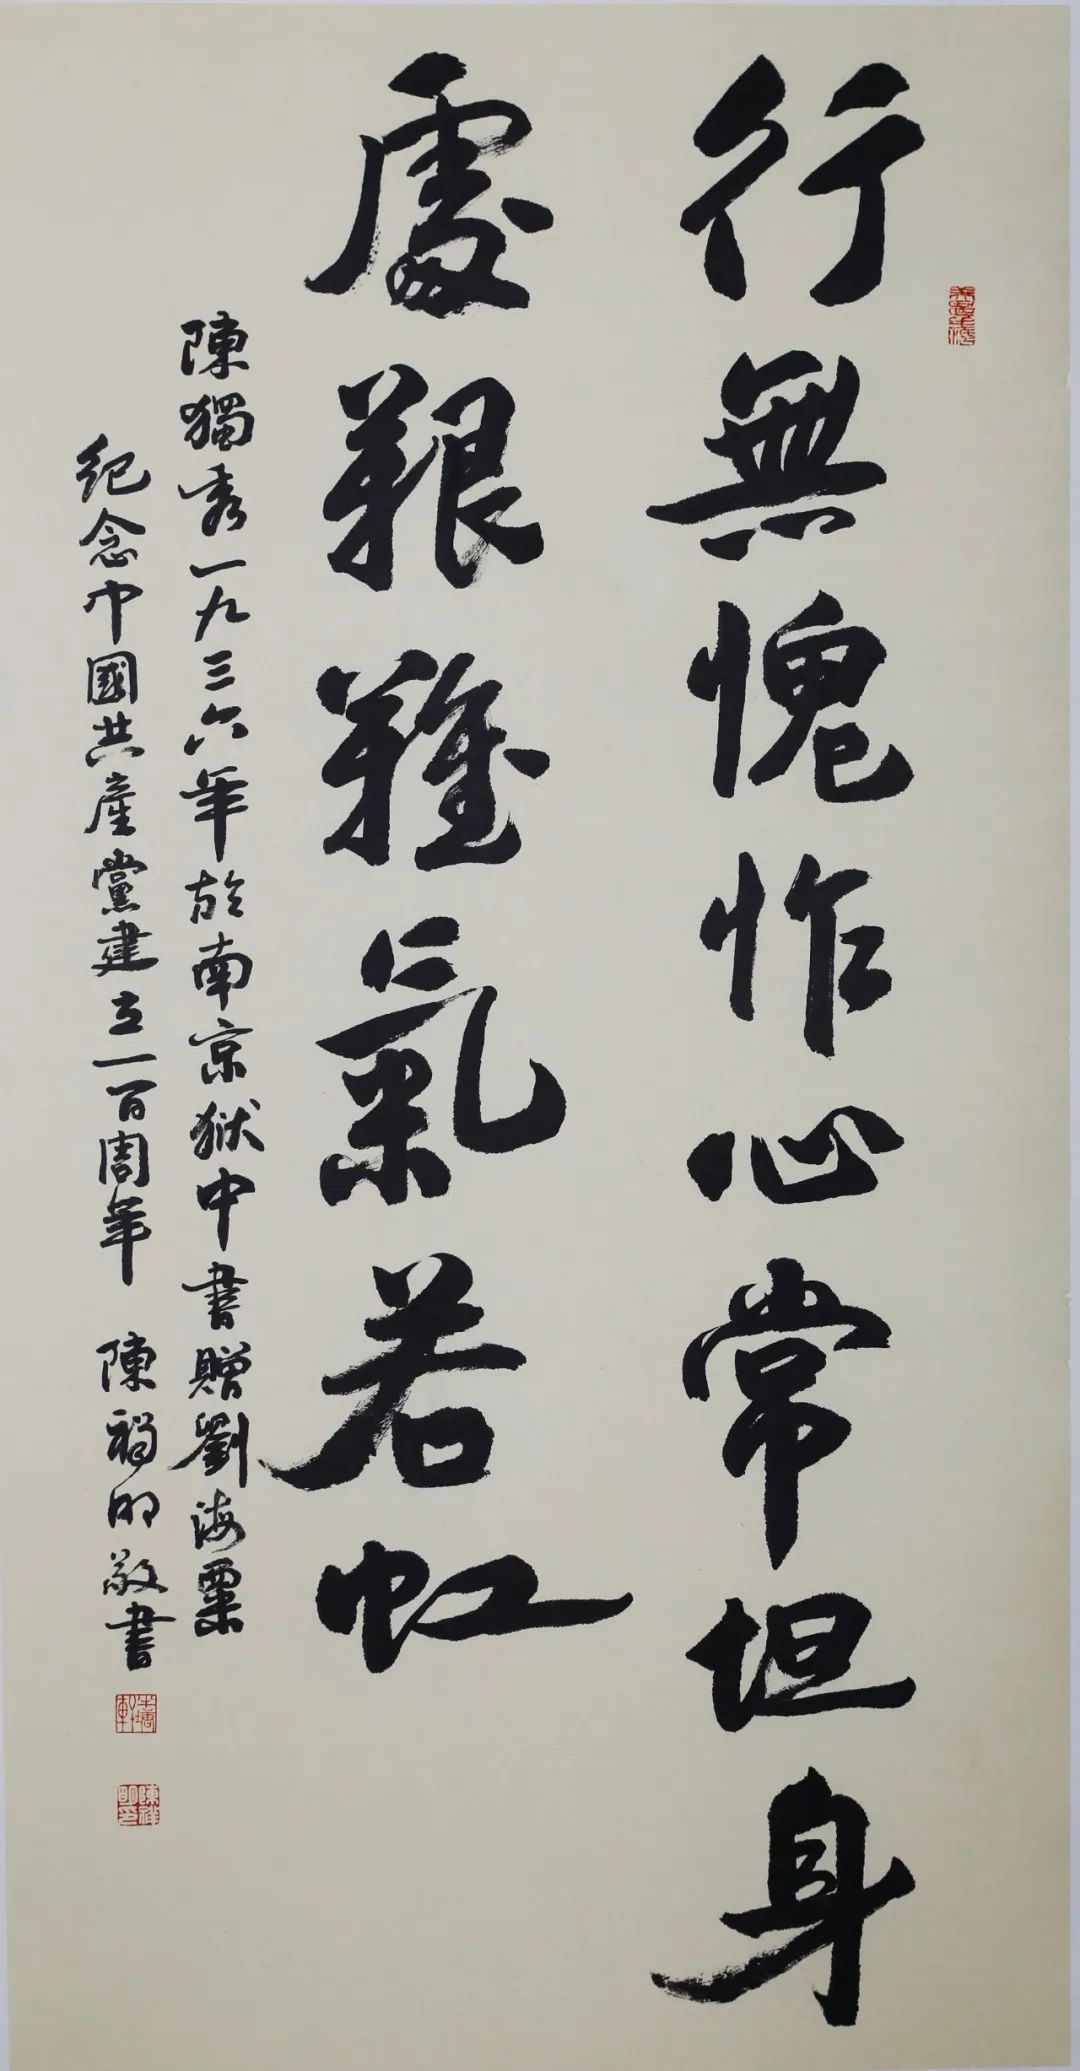 行無愧怍心常坦身
處艱難氣若虹
陳獨秀一九三六年於南京獄中書贈劉海粟
紀念中國共產黨建立一百周年 陳祥明敬書
陳祥明印